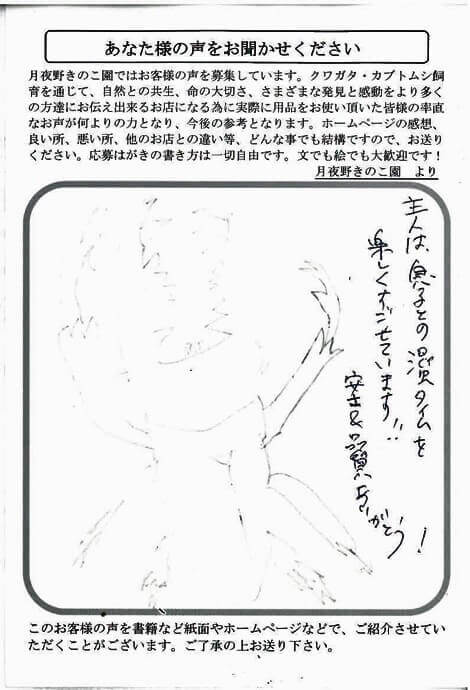 あなた様の声をお聞かせください
月夜野きのこ園ではお客様の声を募集しています。クワガタ・カブトムシ飼
育を通じて、自然との共生、命の大切さ、さまざまな発見と感動をより多く
の方達にお伝え出来るお店になる為に実際に用品をお使い頂いた皆様の率直
なお声が何よりの力となり、今後の参考となります。ホームページの感想、
良い所、悪い所、他のお店との違い等、どんな事でも結構ですので、お送り
ください。応募はがきの書き方は一切自由です。文でも絵でも大歓迎です！
月夜野きのこ園　より
主人は、息子との タイムを
楽しくすごせています!!
安さ&品質 ありがとう!
このお客様の声を書籍など紙面やホームページなどで、ご紹介させてい
ただくことがございます。ご了承の上お送り下さい。